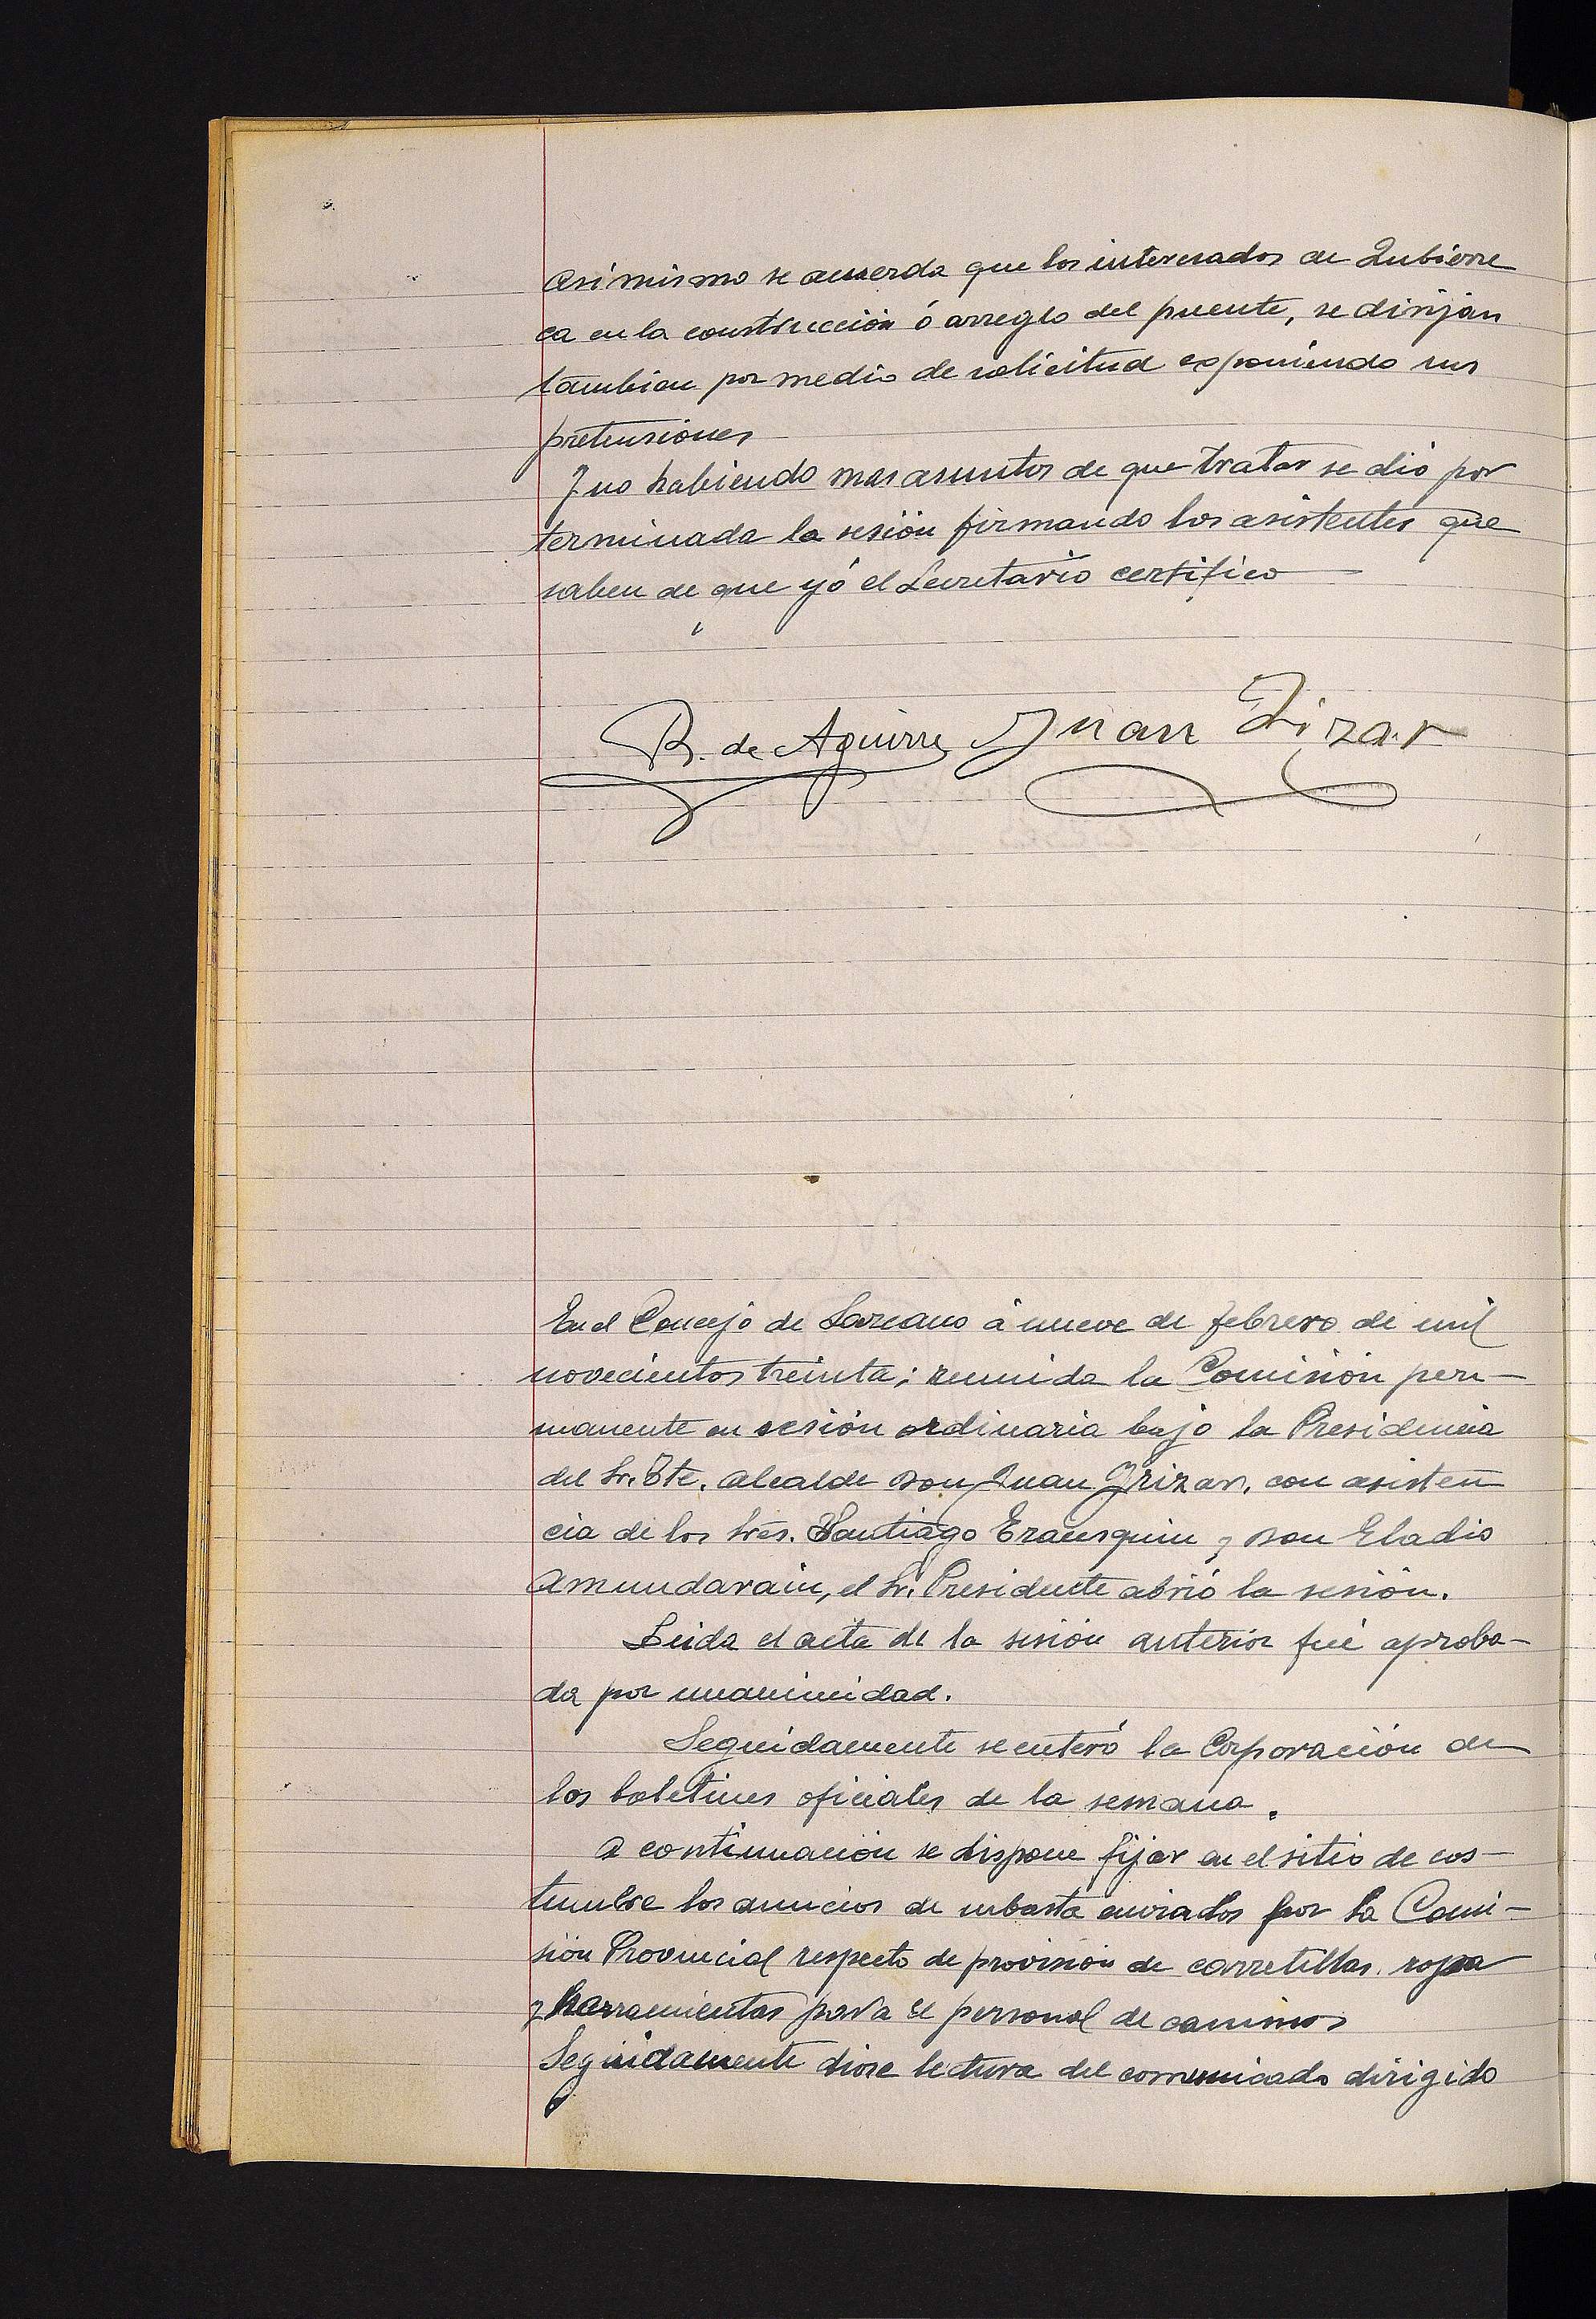 Asimismo se acuerda que los interesados en Zubierre
ca en la construcción ó arreglo del puente, se dirijan
tambien por medio de solicitud exponiendo sus
pretensiones
Y no habiendo mas asuntos de que tratar se dió por
terminada la sesión firmando los asistentes que
saben de que yó el Secretario certifico
B. de Aguirre Juan Irizar
En el Concejo de Lazcano á nueve de febrero de mil
novecientos treinta; reunida la Comisión per-
manente en sesión ordinaria bajo la Presidencia
del Sr. Tte. Alcalde Don Juan Yrizar, con asisten
cia de los Srés. Santiago Erausquin y Don Eladio
Amundarain, el Sr. Presidente abrió la sesión.
Leida el acta de la sesión anterior fué aproba-
da por unanimidad.
Seguidamente se enteró la Corporación de
los boletines oficiales de la semana.
A continuación se dispone fijar en el sitio de cos-
tumbre los anuncios de subasta enviados por la Comi-
sión Provincial respecto de provisión de carretillas, ropa
y harramientas para el personal de caminos
Seguidamente diose lectura del comunicado dirigido